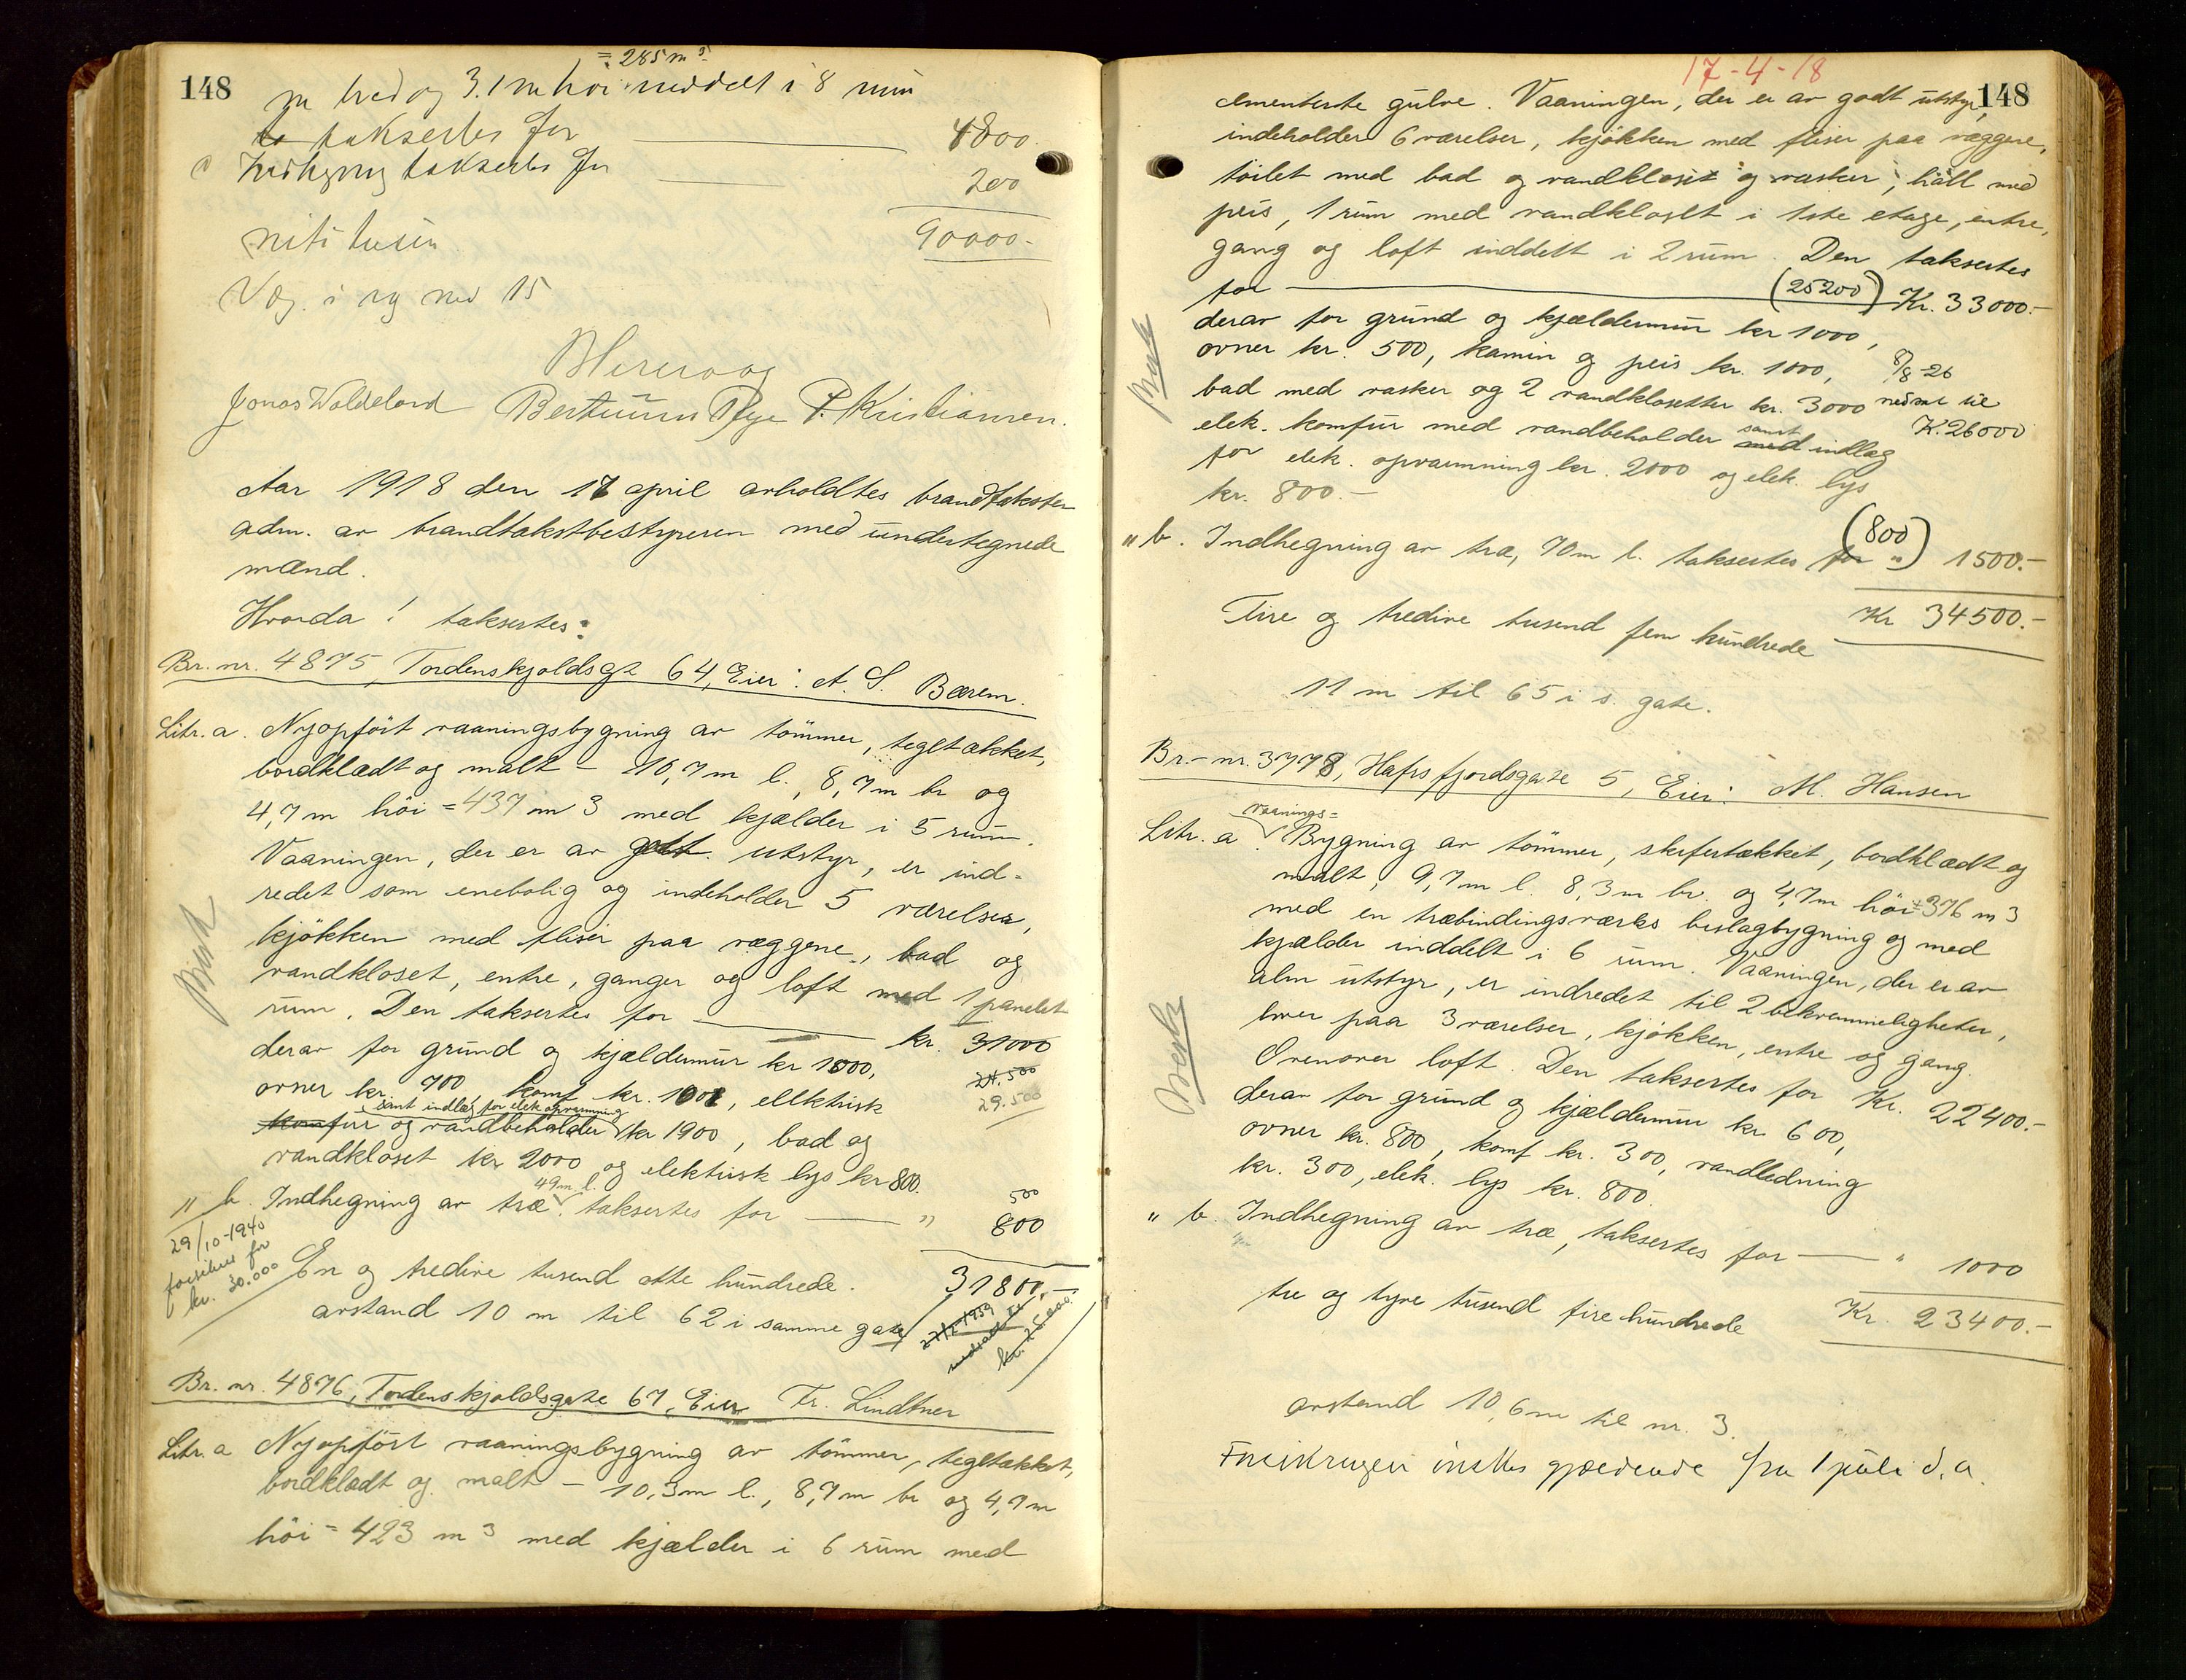 148
= 285 m³
m bred og 3.1 m høi inddelt i 8 rum
takseres for 4800.
Indhegning takseres for 200
niti tusen 90000.-
Væg. i og ned 15
Jonas Waldeland Bertinius Rege P. Kristiansen.
Aar 1918 den 17 april avholdtes brandtakster
adm. av brandtakstbestyreren med undertegnede
mænd.
Hvorda! taksertes:
Br. nr. 4875, Tordenskjoldsgt 64, Eier: A. S. Bærem.
Litr. a. Nyopført vaaningsbygning av tømmer, tegltækket,
bordklædt og malt – 10,7 m l., 8,7 m br og
4,7 m høi = 437 m 3 med kjælder i 5 rum.
Vaaningen, der er av godt utstyr, er ind-
redet som enebolig og indeholder 5 værelser,
kjøkken med fliser paa væggene, bad og
vandkloset, entre, ganger og loft med 1 panelet
rum. Den taksertes for kr. 31000
derav for grund og kjældermur kr 1000, 24.500
ovner kr. 700, komf kr. 100, ellktrisk 29.500
samt indlæg for elek opvarmning
komfur og vandbeholder kr 1900, bad og
vandkloset kr 2000 og elektrisk lys kr 800.
49 m l. 500
" b. Indhegning av træ taksertes for " 800
29/10-1940
forsikres for
kr. 30.000
En og tredive tusend otte hundrede. 31800.-
avstand 10 m til 62 i samme gate
1939
nedsat til
kr.
Br. nr. 4876, Tordenskjoldsgate 67, Eier Fr. Lindtner
Litr. a Nyopført vaaningsbygning av tømmer, tegltækket,
bordklædt og malt – 10,3 m l., 8,7 m br og 4,7 m
høi = 423 m 3 med kjælder i 6 rum med
17-4-18
148
cementerte gulve. Vaaningen, der er av godt utstyr,
indeholder 6 værelser, kjøkken med fliser paa væggene,
toilet med bad og vandkloset og vasker, hall med
peis, 1 rum med vandkloset i 1ste etage, entre,
gang og loft inddelt i 2 rum. Den taksertes
for (25200) Kr. 33000.-
derav for grund og kjældermur kr 1000,
ovner kr. 500, kamin og peis kr. 1000, 8/8-26
bad med vasker og 2 vandklosetter kr. 3000 nedsat til
K. 26000
elek. komfur med vandbeholder samt med indlæg
for elek. opvarmning kr. 2000 og elek. lys
kr. 800.-
" b. Indhegning av træ, 70 m l. taksertes for " (800) 1500.-
Fire og tredive tusend fem hundrede Kr 34500.-
11 m til 65 i s. gate.
Br.-nr. 3778, Hafrsfjordsgate 5, Eier: M. Hansen
vaanings=
Litr. a. Bygning av tømmer, skifertækket, bordklædt og
malt, 9,7 m l. 8,3 m br. og 4,7 m høi = 376 m 3
med en træbindingsværks beslagbygning og med
kjælder inddelt i 6 rum. Vaaningen, der er av
alm utstyr, er indredet til 2 bekvemmeligheter,
hver paa 3 værelser, kjøkken, entre og gang.
Ovenover loft. Den taksertes for Kr. 22400.-
derav for grund og kjældermur kr 600,
ovner kr. 800, komf kr. 300, vandledning
kr. 300, elek. lys kr. 800.
" b. Indhegning av træ, taksertes for " 1000
tre og tyve tusend fire hundrede Kr. 23400.-
avstand 10,6 m til nr. 3.
Forsikringen ønskes gjældende fra 1 juli d. a.